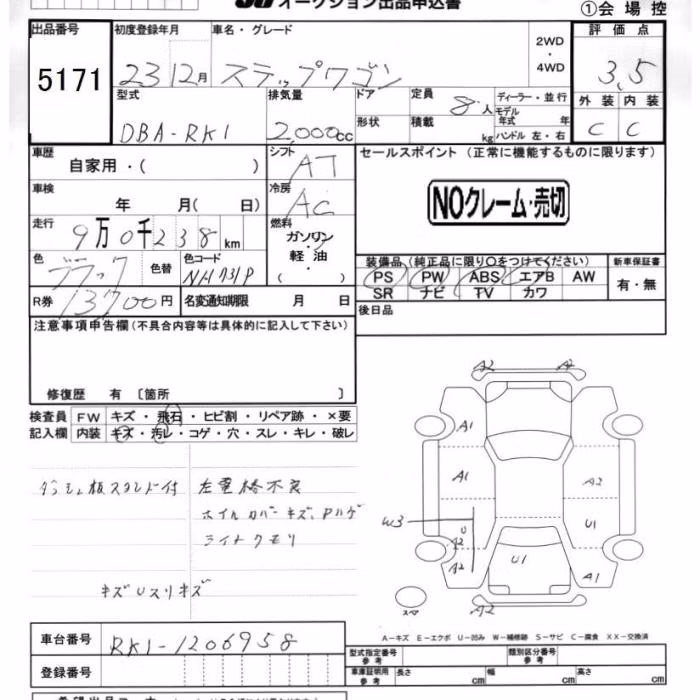 オークション出品申込書
①会場控
出品番号 初度登録年月 車名・グレード 2WD・4WD 評価点
5171 23 12月 ステップワゴン 3.5
型式 排気量 ドア 定員 8人 ディーラー・並行 外装 内装
DBA-RK1 2,000cc 形状 積載 kg モデル年式 年 ハンドル 左・右 C C
車歴 自家用・( ) シフト AT セールスポイント (正常に機能するものに限ります)
車検 年 月( 日) 冷房 AC NOクレーム・売切
走行 9万0千238km 燃料 ガソリン・軽油・( )
装備品(純正品に限り○をつけてください) 新車保証書
色 ブラック 色替 色コード NH731P PS PW ABS エアB AW 有・無
SR ナビ TV カワ
R券 13700円 名変通知期限 月 日 後日品
注意事項申告欄(不具合内容等は具体的に記入して下さい)
修復歴 有 〔箇所 〕
検査員 FW キズ・飛石・ヒビ割・リペア跡・×要
記入欄 内装 キズ・汚レ・コゲ・穴・スレ・キレ・破レ
ダッシュ板スタンド付 左電格不良
ホイルカバーキズ、Pハゲ
ライトクモリ
キズUスリキズ
A2 A2
A1
A1 A2
W3 U U1
A2
A2 U1 A1
スペ A2
A-キズ E-エクボ U-凹み W-補修跡 S-サビ C-腐食 XX-交換済
車台番号 RK1-1206958
型式指定番号 参考 類別区分番号 参考
登録番号 車庫証明用 参考 長さ cm 幅 cm 高さ cm